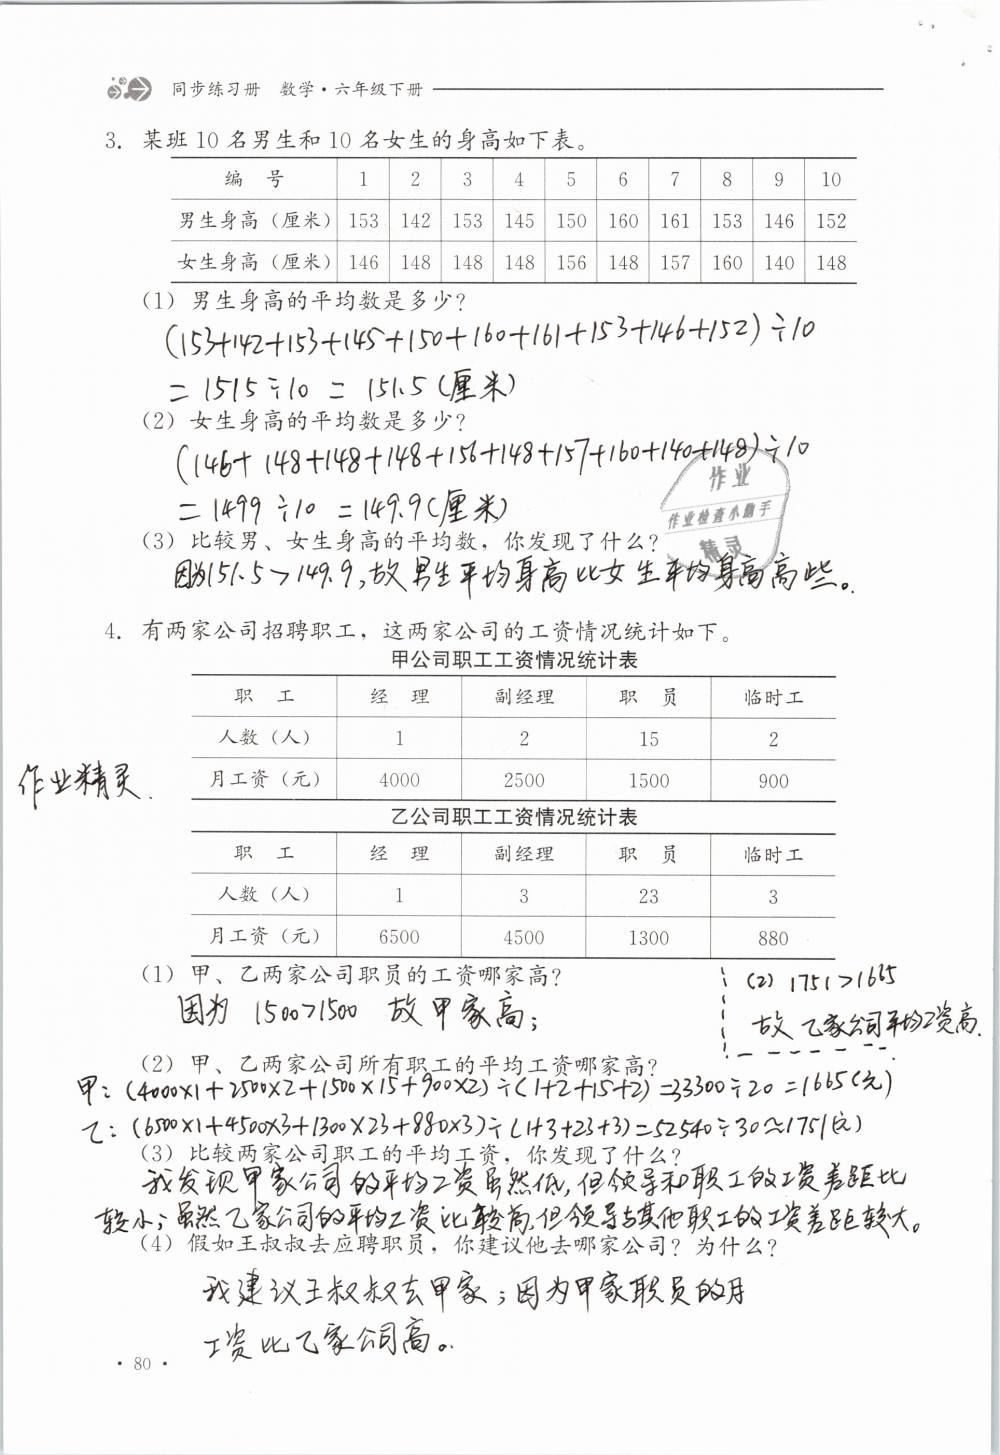 同步练习册 数学·六年级下册
3. 某班 10 名男生和 10 名女生的身高如下表。
编 号 1 2 3 4 5 6 7 8 9 10
男生身高（厘米） 153 142 153 145 150 160 161 153 146 152
女生身高（厘米） 146 148 148 148 156 148 157 160 140 148
（1）男生身高的平均数是多少？
(153+142+153+145+150+160+161+153+146+152)÷10
=1515÷10 = 151.5(厘米)
（2）女生身高的平均数是多少？
(146+148+148+148+156+148+157+160+140+148)÷10
=1499÷10 =149.9(厘米)
作业
作业检查小助手
精灵
（3）比较男、女生身高的平均数，你发现了什么？
因为151.5>149.9,故男生平均身高比女生平均身高高些。
4. 有两家公司招聘职工，这两家公司的工资情况统计如下。
甲公司职工工资情况统计表
职 工 经 理 副经理 职 员 临时工
人数（人） 1 2 15 2
月工资（元） 4000 2500 1500 900
作业精灵.
乙公司职工工资情况统计表
职 工 经 理 副经理 职 员 临时工
人数（人） 1 3 23 3
月工资（元） 6500 4500 1300 880
（1）甲、乙两家公司职员的工资哪家高？
因为 1500>1500 故甲家高；
(2) 1751>1665
故乙家公司平均工资高.
（2）甲、乙两家公司所有职工的平均工资哪家高？
甲：(4000×1+2500×2+1500×15+900×2)÷(1+2+15+2)=33300÷20=1665(元)
乙：(6500×1+4500×3+1300×23+880×3)÷(1+3+23+3)=52540÷30≈1751(元)
（3）比较两家公司职工的平均工资，你发现了什么？
我发现甲家公司的平均工资虽然低,但领导和职工的工资差距比
较小；虽然乙家公司的平均工资比较高,但领导与其他职工的工资差距较大。
（4）假如王叔叔去应聘职员，你建议他去哪家公司？为什么？
我建议王叔叔去甲家；因为甲家职员的月
工资比乙家公司高。
· 80 ·